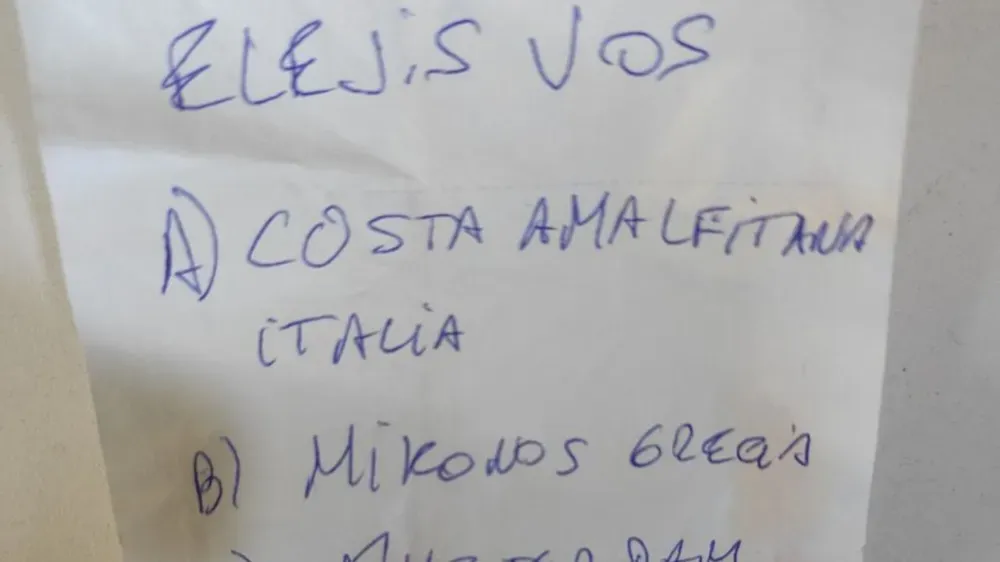 ELEJIS VOS
A) COSTA AMALFITANA
ITALIA
B) MIKONOS GRECIA